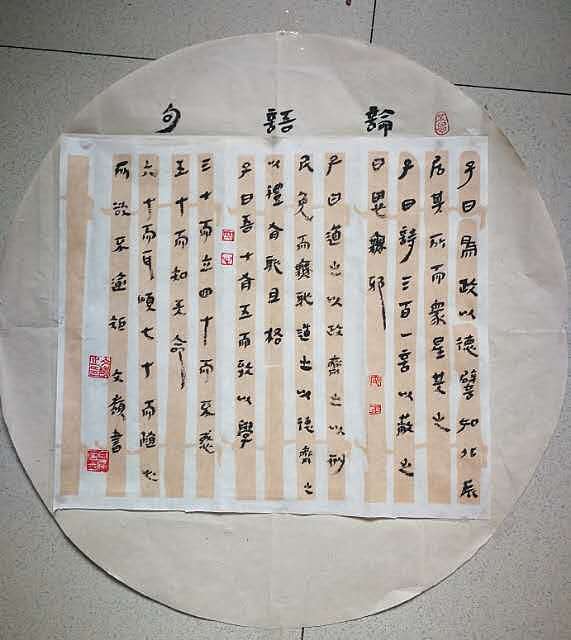 論語句
子曰為政以德譬如北辰
居其所而衆星共之
子曰詩三百一言以蔽之
曰思無邪
子曰道之以政齊之以刑
民免而無恥道之以德齊之
以禮有恥且格
子曰吾十有五而以學
三十而立四十而不惑
五十而知天命
六十而耳順七十而隨心
所欲不逾矩 文書